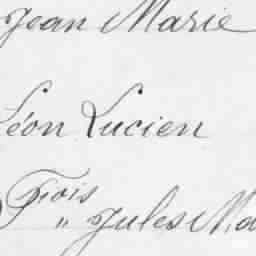 Jean Marie
Léon Lucien
Fois
" Jules Ma